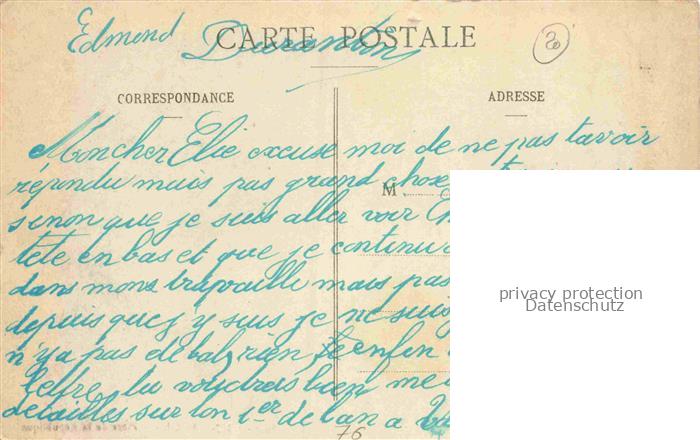 Edmond
CARTE POSTALE
CORRESPONDANCE
ADRESSE
Mon cher Elie excuse moi de ne pas tavoir
répondu mais pas grand chose
M
sinon que je suis aller voir
tête en bas et que je continu
dans mons trapvaille mais pas
depuis que j'y suis je ne suis
n'ya pas de bal, rien, enfin
tu voudrais bien me
detailles sur ton 1er de lan a
76
privacy protection
Datenschutz